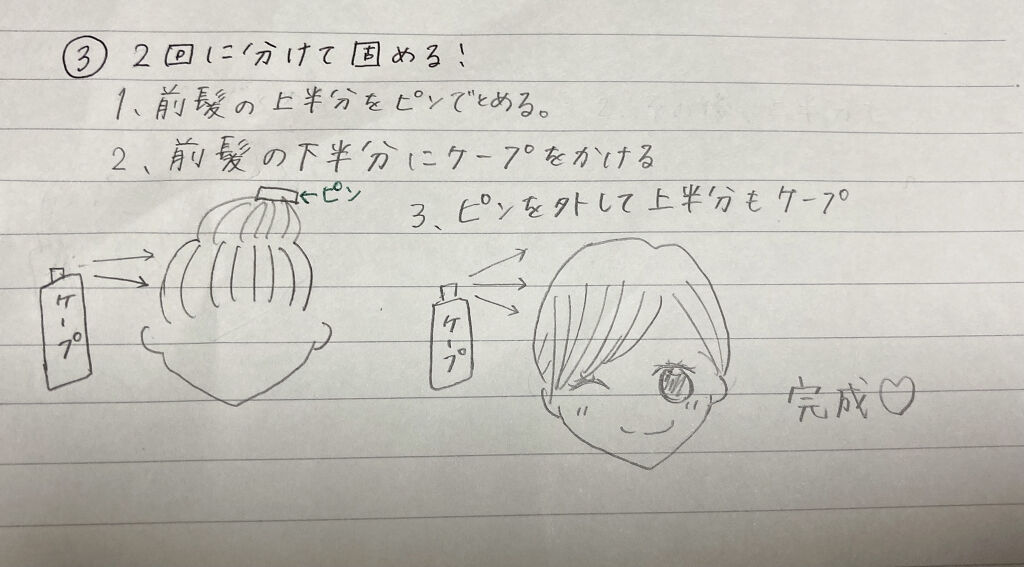 ③ 2回に分けて固める!
1、前髪の上半分をピンでとめる。
2、前髪の下半分にケープをかける
←ピン
3、ピンを外して上半分もケープ
ケープ
ケープ
完成♡